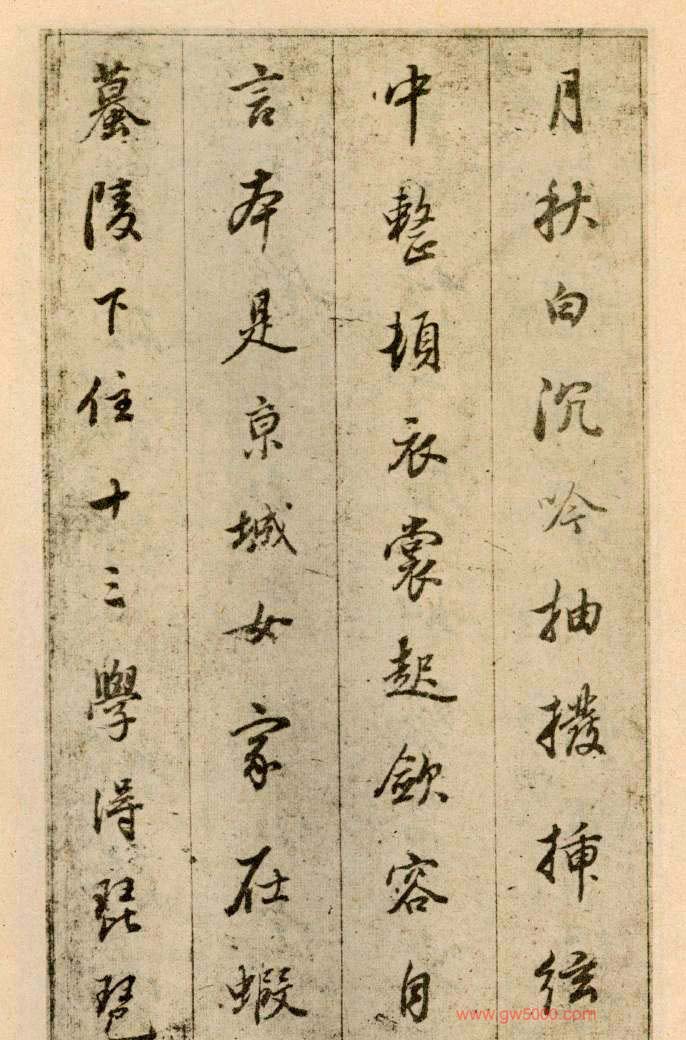 月秋白沉吟抽撥插絃
中整頓衣裳起斂容自
言本是京城女家在蝦
蟇陵下住十三學得琵琶
www.gw5000.com